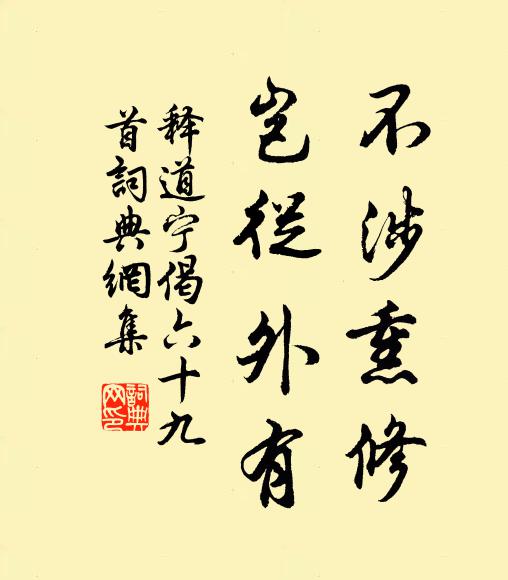 不涉熏修
岂從外有
释道宁偈六十九
首詞典網集
詞典
网印